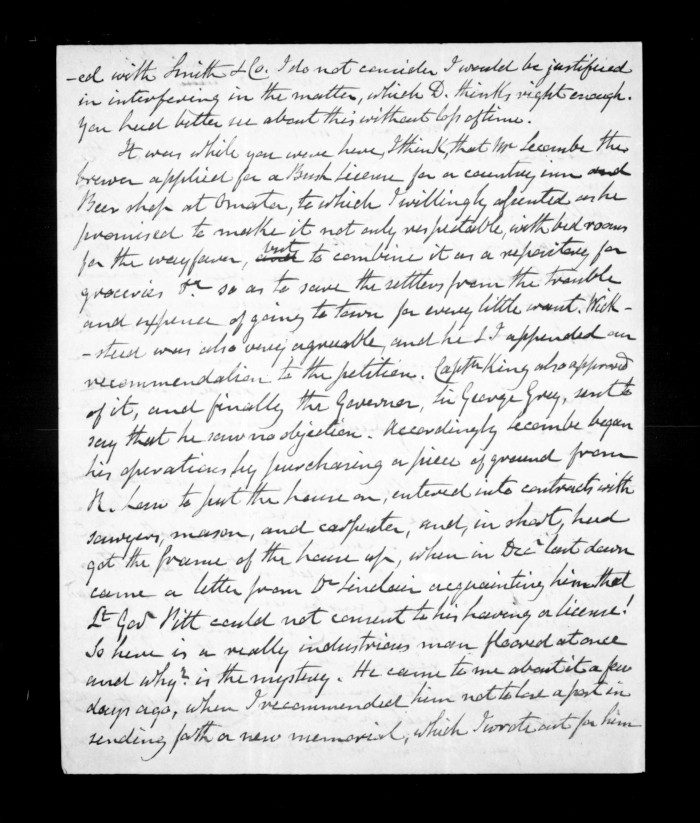 -ed with Smith & Co. I do not consider I would be justified
in interfering in the matter, which D. thinks right enough.
You had better see about this without loss of time.
It was while you were here, I think, that Mr Seccombe the
brewer applied for a Bush License for a country inn and
Beer shop at Omata, to which I willingly assented as he
promised to make it not only respectable, with bed rooms
for the wayfarer, and but to combine it as a repository for
groceries &c so as to save the settlers from the trouble
and expence of going to town for every little want. Wick-
-steed was also very agreable, and he & I appended our
recommendation to the petition. Captn King also approved
of it, and finally the Governor, Sir George Grey, sent to
say that he saw no objection. Accordingly Seccombe began
his operations by purchasing a piece of ground from
R. Law to put the house on, entered into contracts with
sawyers, mason, and carpenter, and, in short, had
got the frame of the house up, when in Decr last down
came a letter from Dr Sinclair acquainting him that
Lt Govr Pitt could not consent to his having a license!
So here is a really industrious man floored at once
and why? is the mystery. He came to me about it a few
days ago, when I recommended him not to lose a post in
sending forth a new memorial, which I wrote out for him